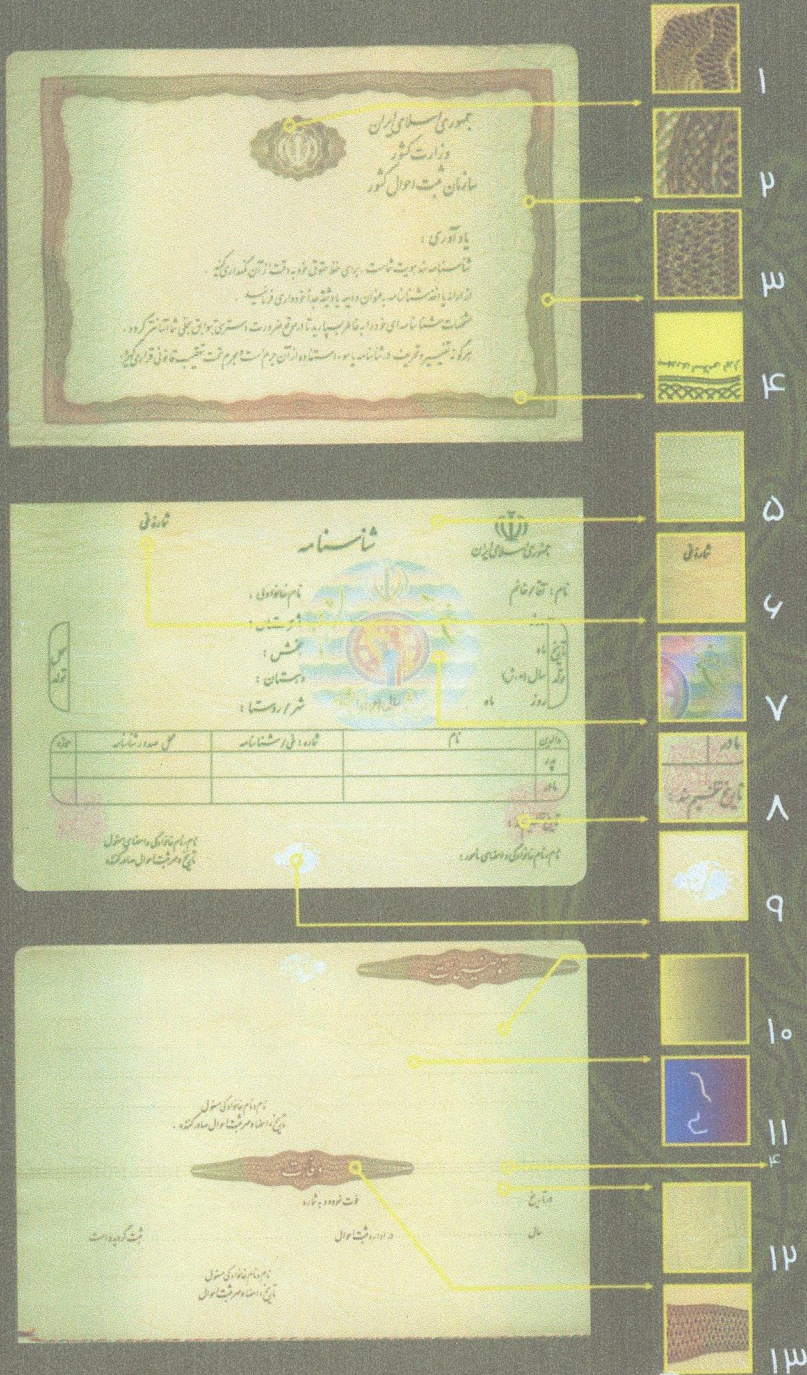 جمهوری اسلامی ایران
وزارت کشور
سازمان ثبت احوال کشور
یادآوری :
شناسنامه سند هویت شماست . برای حفظ حقوق خود به دقت از آن نگهداری کنید .
از ارائه یا اخذ شناسنامه به عنوان ودیعه یا وثیقه جداً خودداری فرمائید .
مشخصات شناسنامه ای خود را به خاطر بسپارید تا در موقع ضرورت دسترسی به سوابق سجلی شما آسانتر گردد .
هرگونه تغییر و تحریف در شناسنامه یا سوء استفاده از آن جرم است و مجرم تحت تعقیب قانونی قرار می گیرد
شماره ملی
شناسنامه
جمهوری اسلامی ایران
نام : آقا / خانم
نام خانوادگی :
تاریخ تولد
روز
ماه
سال (ه.ش)
روز
ماه
شهرستان :
بخش :
دهستان :
شهر / روستا :
محل تولد
والدین
نام
شماره : ملی / شناسنامه
محل صدور شناسنامه
حوزه
پدر
مادر
تاریخ تنظیم سند :
نام و نام خانوادگی و امضای مأمور :
نام و نام خانوادگی و امضای مسئول
تاریخ و مهر ثبت احوال صادر کننده
توضیحات
نام و نام خانوادگی مسئول
تاریخ ، امضا و مهر ثبت احوال صادر کننده .
وفات
در تاریخ
فوت نموده و به شماره
سال
در اداره ثبت احوال
ثبت گردیده است
نام و نام خانوادگی مسئول
تاریخ ، امضا و مهر ثبت احوال
۱
۲
۳
جمهوری اسلامی ایران
۴
۵
شماره ملی
۶
۷
مادر
تاریخ تنظیم سند :
۸
۹
۱۰
۱۱
۴
۱۲
۱۳